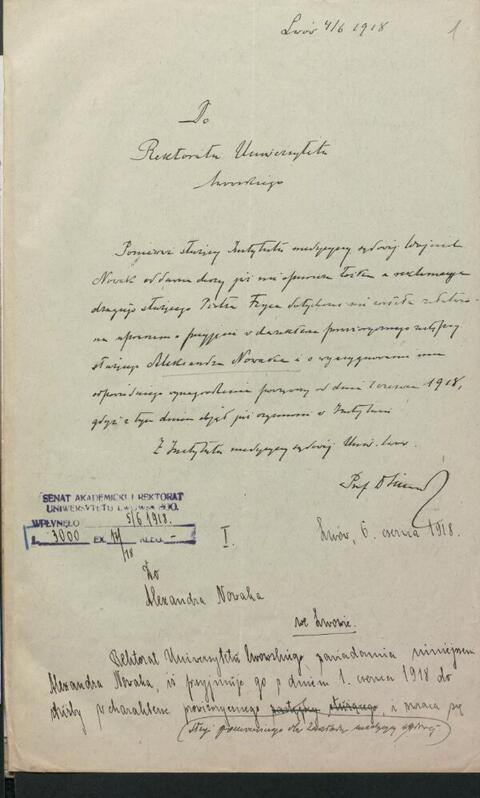 Lwów 4/6 1918
1
Do
Rektoratu Uniwersytetu
lwowskiego
Ponieważ służący Instytutu medycyny sądowej Wojciech
Nowak od dawna chory już nie opuszcza łóżka a reklamacya
drugiego służącego Piotra Fryca dotychczas nie została
upraszam o przyjęcie w charakterze prowizorycznego zastępcy
służącego Aleksandra Nowaka i o wyasygnowanie mu
odpowiedniego wynagrodzenia począwszy od dnia 1 czerwca 1918,
gdyż z tym dniem objął już czynności w Instytucie
Z Instytutu medycyny sądowej Uniw. lwow.
Prof. D
SENAT AKADEMICKI I REKTORAT
UNIWERSYTETU LWOWSKIEGO.
WPŁYNĘŁO 5/6 1918.
L. 3000 EX. 17/18 ALLEG. -
I.
Lwów, 6. czerwca 1918.
Do
Alexandra Nowaka
we Lwowie.
Rektorat Uniwersytetu lwowskiego zawiadamia niniejszem
Alexandra Nowaka, iż przyjmuje go z dniem 1. czerwca 1918 do
służby w charakterze prowizorycznego zastępcy służącego, i zwraca się
sługi pomocniczego dla Zakładu medycyny sądowej